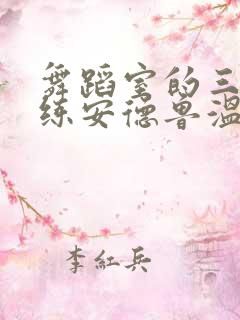 舞蹈室的三
练安德鲁温
李红兵